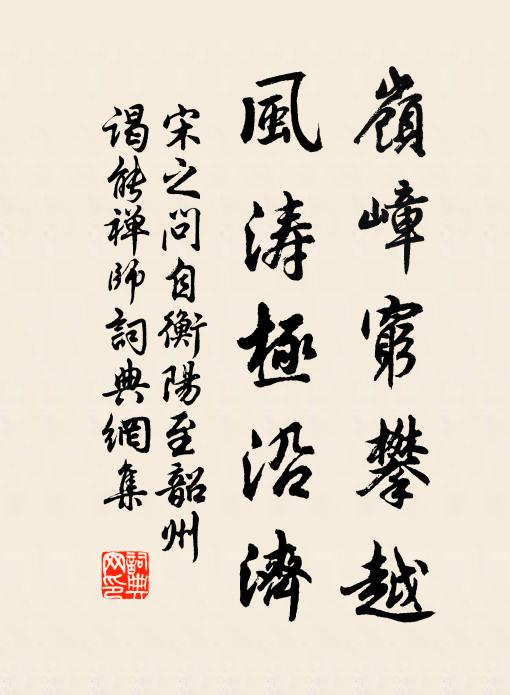 嶺嶂窮攀越
風濤極沿濟
宋之问自衡陽至韶州
谒能禅師詞典網集
詞典
网印